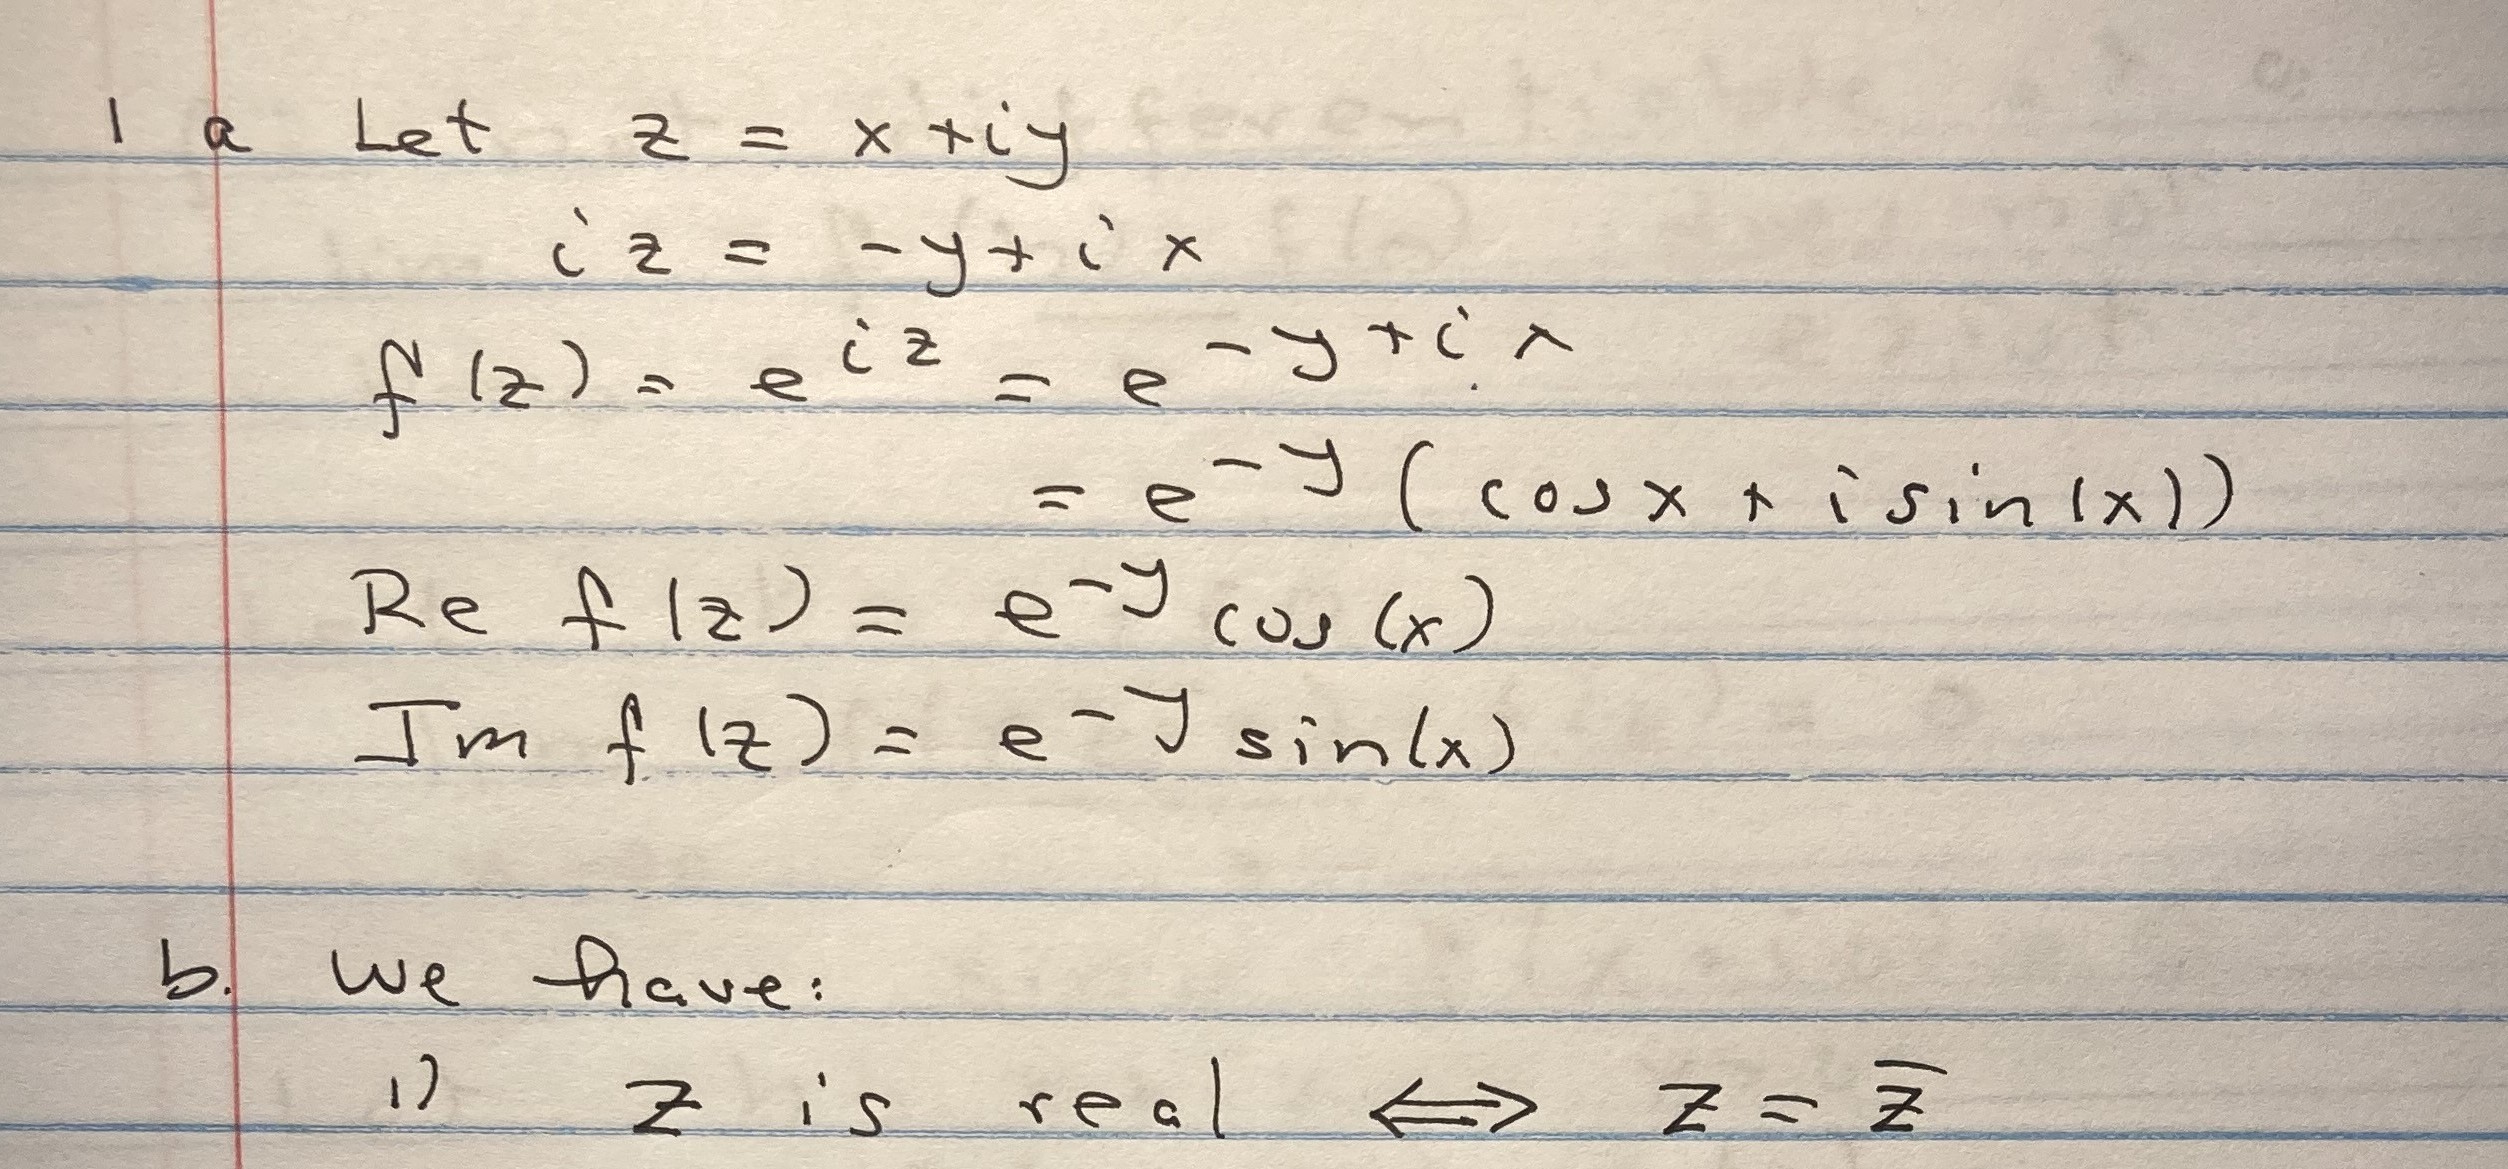 1 a Let z = x + iy
iz = -y + ix
f(z) = e^{iz} = e^{-y+ix}
= e^{-y} (cos x + i sin(x))
Re f(z) = e^{-y} cos(x)
Im f(z) = e^{-y} sin(x)
b. We have:
1) z is real ⟺ z = z̄